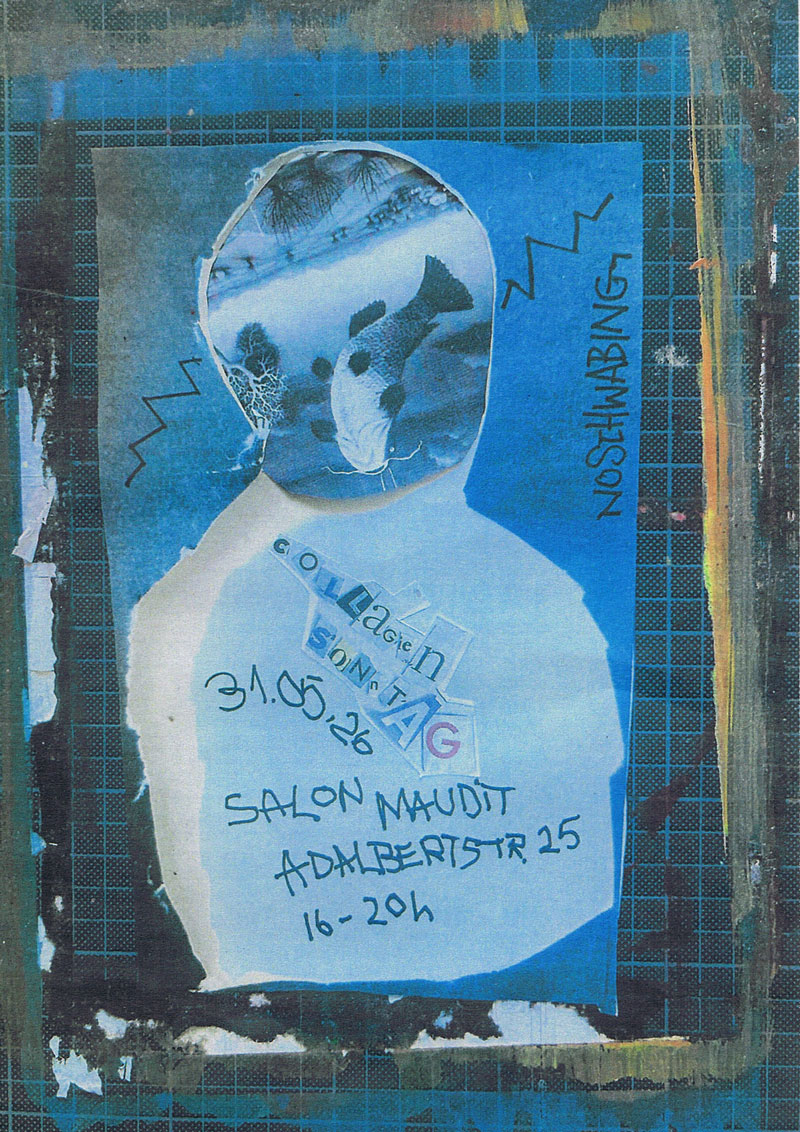 COLLaGen
SONnTAG
31.05.26
SALON MAUDIT
ADALBERTSTR. 25
16-20h
NOSCHWABING